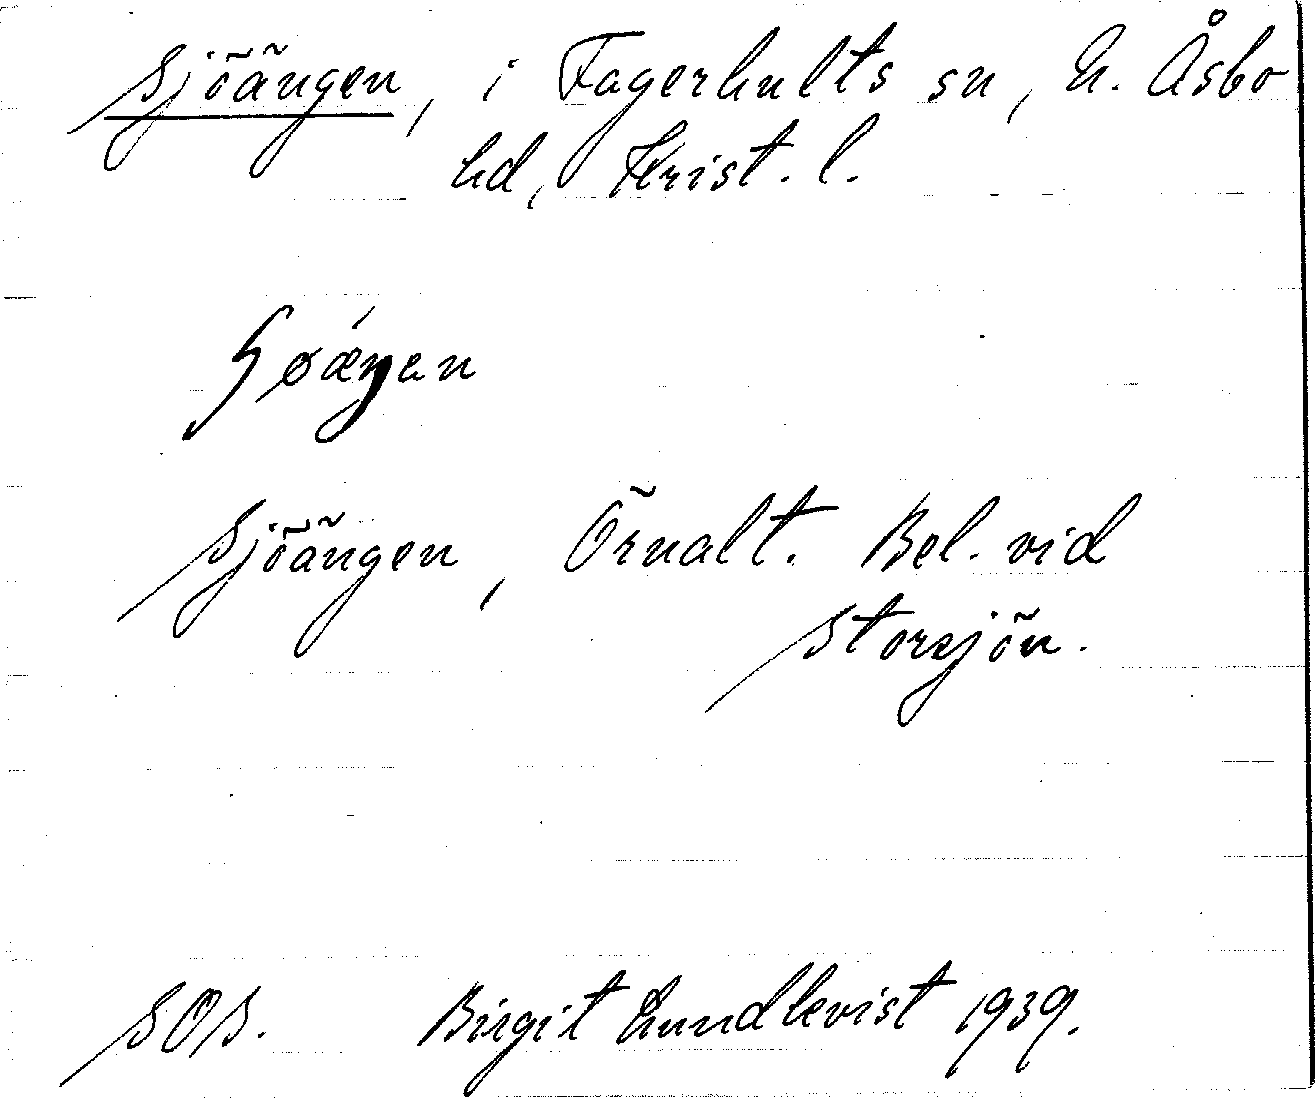 Sjöängen, i Fagerhults sn, N. Åsbo
hd, Krist. l.
Sjöängen, Örnalt. Bel. vid
Storsjön.
SOS. Birgit Lundkvist 1939.